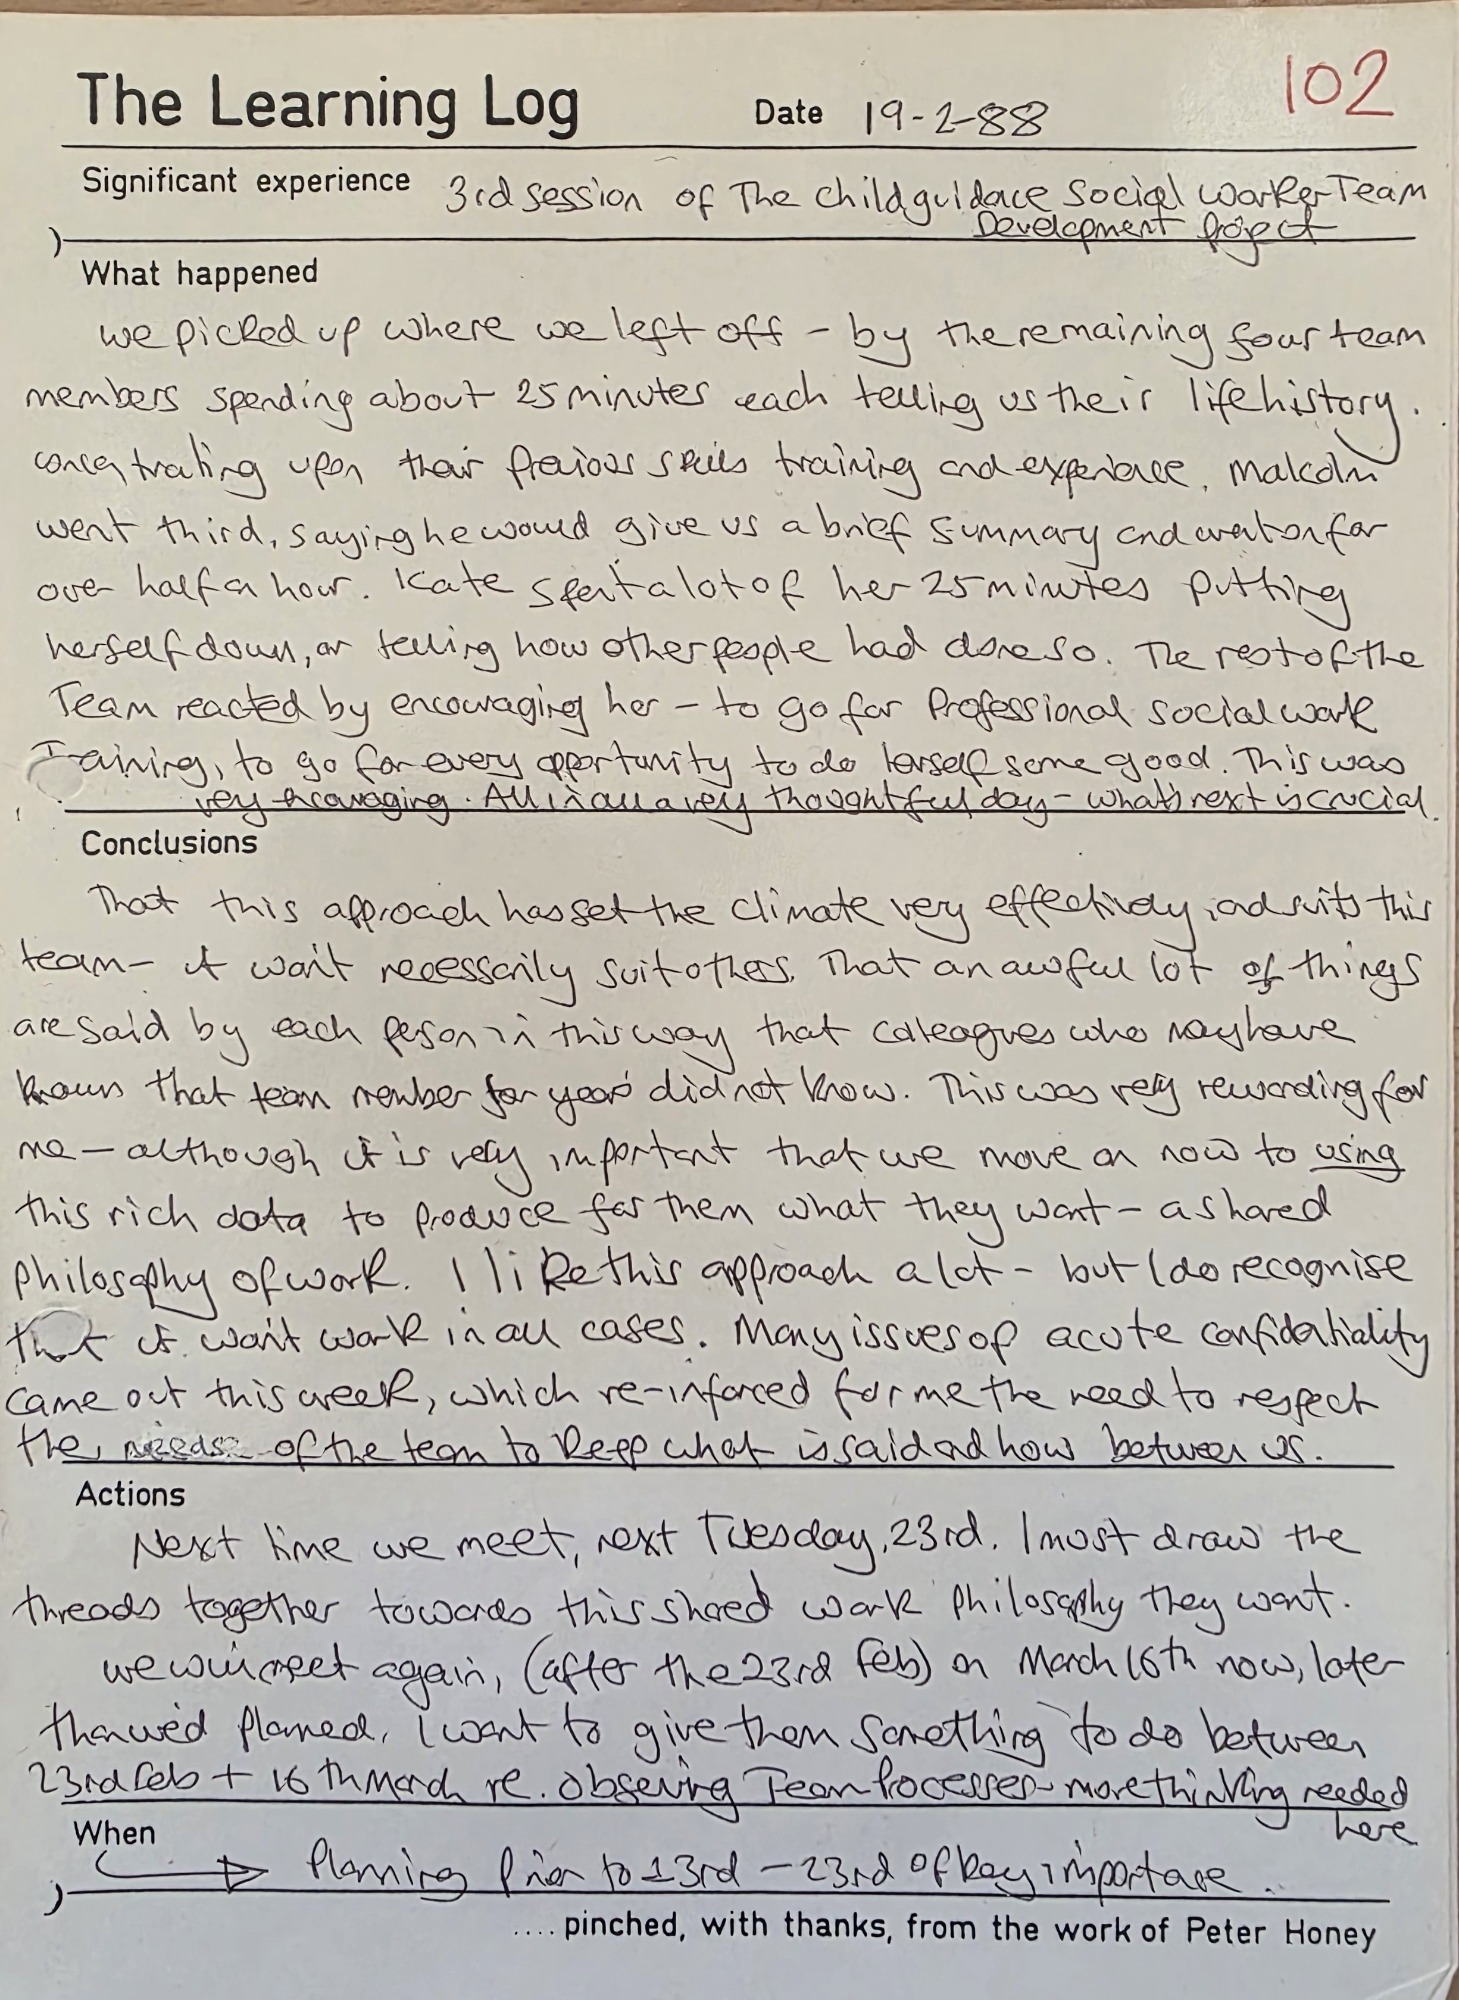 102
The Learning Log Date 19-2-88
Significant experience 3rd session of The Childguidance Social Worker Team
Development Project
What happened
we picked up where we left off – by the remaining four team
members spending about 25 minutes each telling us their life history.
concentrating upon their previous skills training and experience. Malcolm
went third, saying he would give us a brief summary and went on for
over half an hour. Kate spent a lot of her 25 minutes putting
herself down, or telling how other people had done so. The rest of the
Team reacted by encouraging her – to go for Professional social work
Training, to go for every opportunity to do herself some good. This was
very encouraging. All in all a very thoughtful day – what's next is crucial.
Conclusions
That this approach has set the climate very effectively, and suits this
team – it won't necessarily suit others. That an awful lot of things
are said by each person in this way that colleagues who may have
known that team member for years did not know. This was very rewarding for
me – although it is very important that we move on now to using
this rich data to produce for them what they want – a shared
philosophy of work. I like this approach a lot – but I do recognise
that it won't work in all cases. Many issues of acute confidentiality
came out this week, which re-inforced for me the need to respect
the needs of the team to keep what is said and how between us.
Actions
Next time we meet, next Tuesday, 23rd. I must draw the
threads together towards this shared work philosophy they want.
we will meet again, (after the 23rd Feb) on March 16th now, later
than we'd planned. I want to give them something to do between
23rd Feb + 16th March re. observing Team Processes – more thinking needed
here
When
Planning Prior to 23rd – 23rd of key importance..
.... pinched, with thanks, from the work of Peter Honey